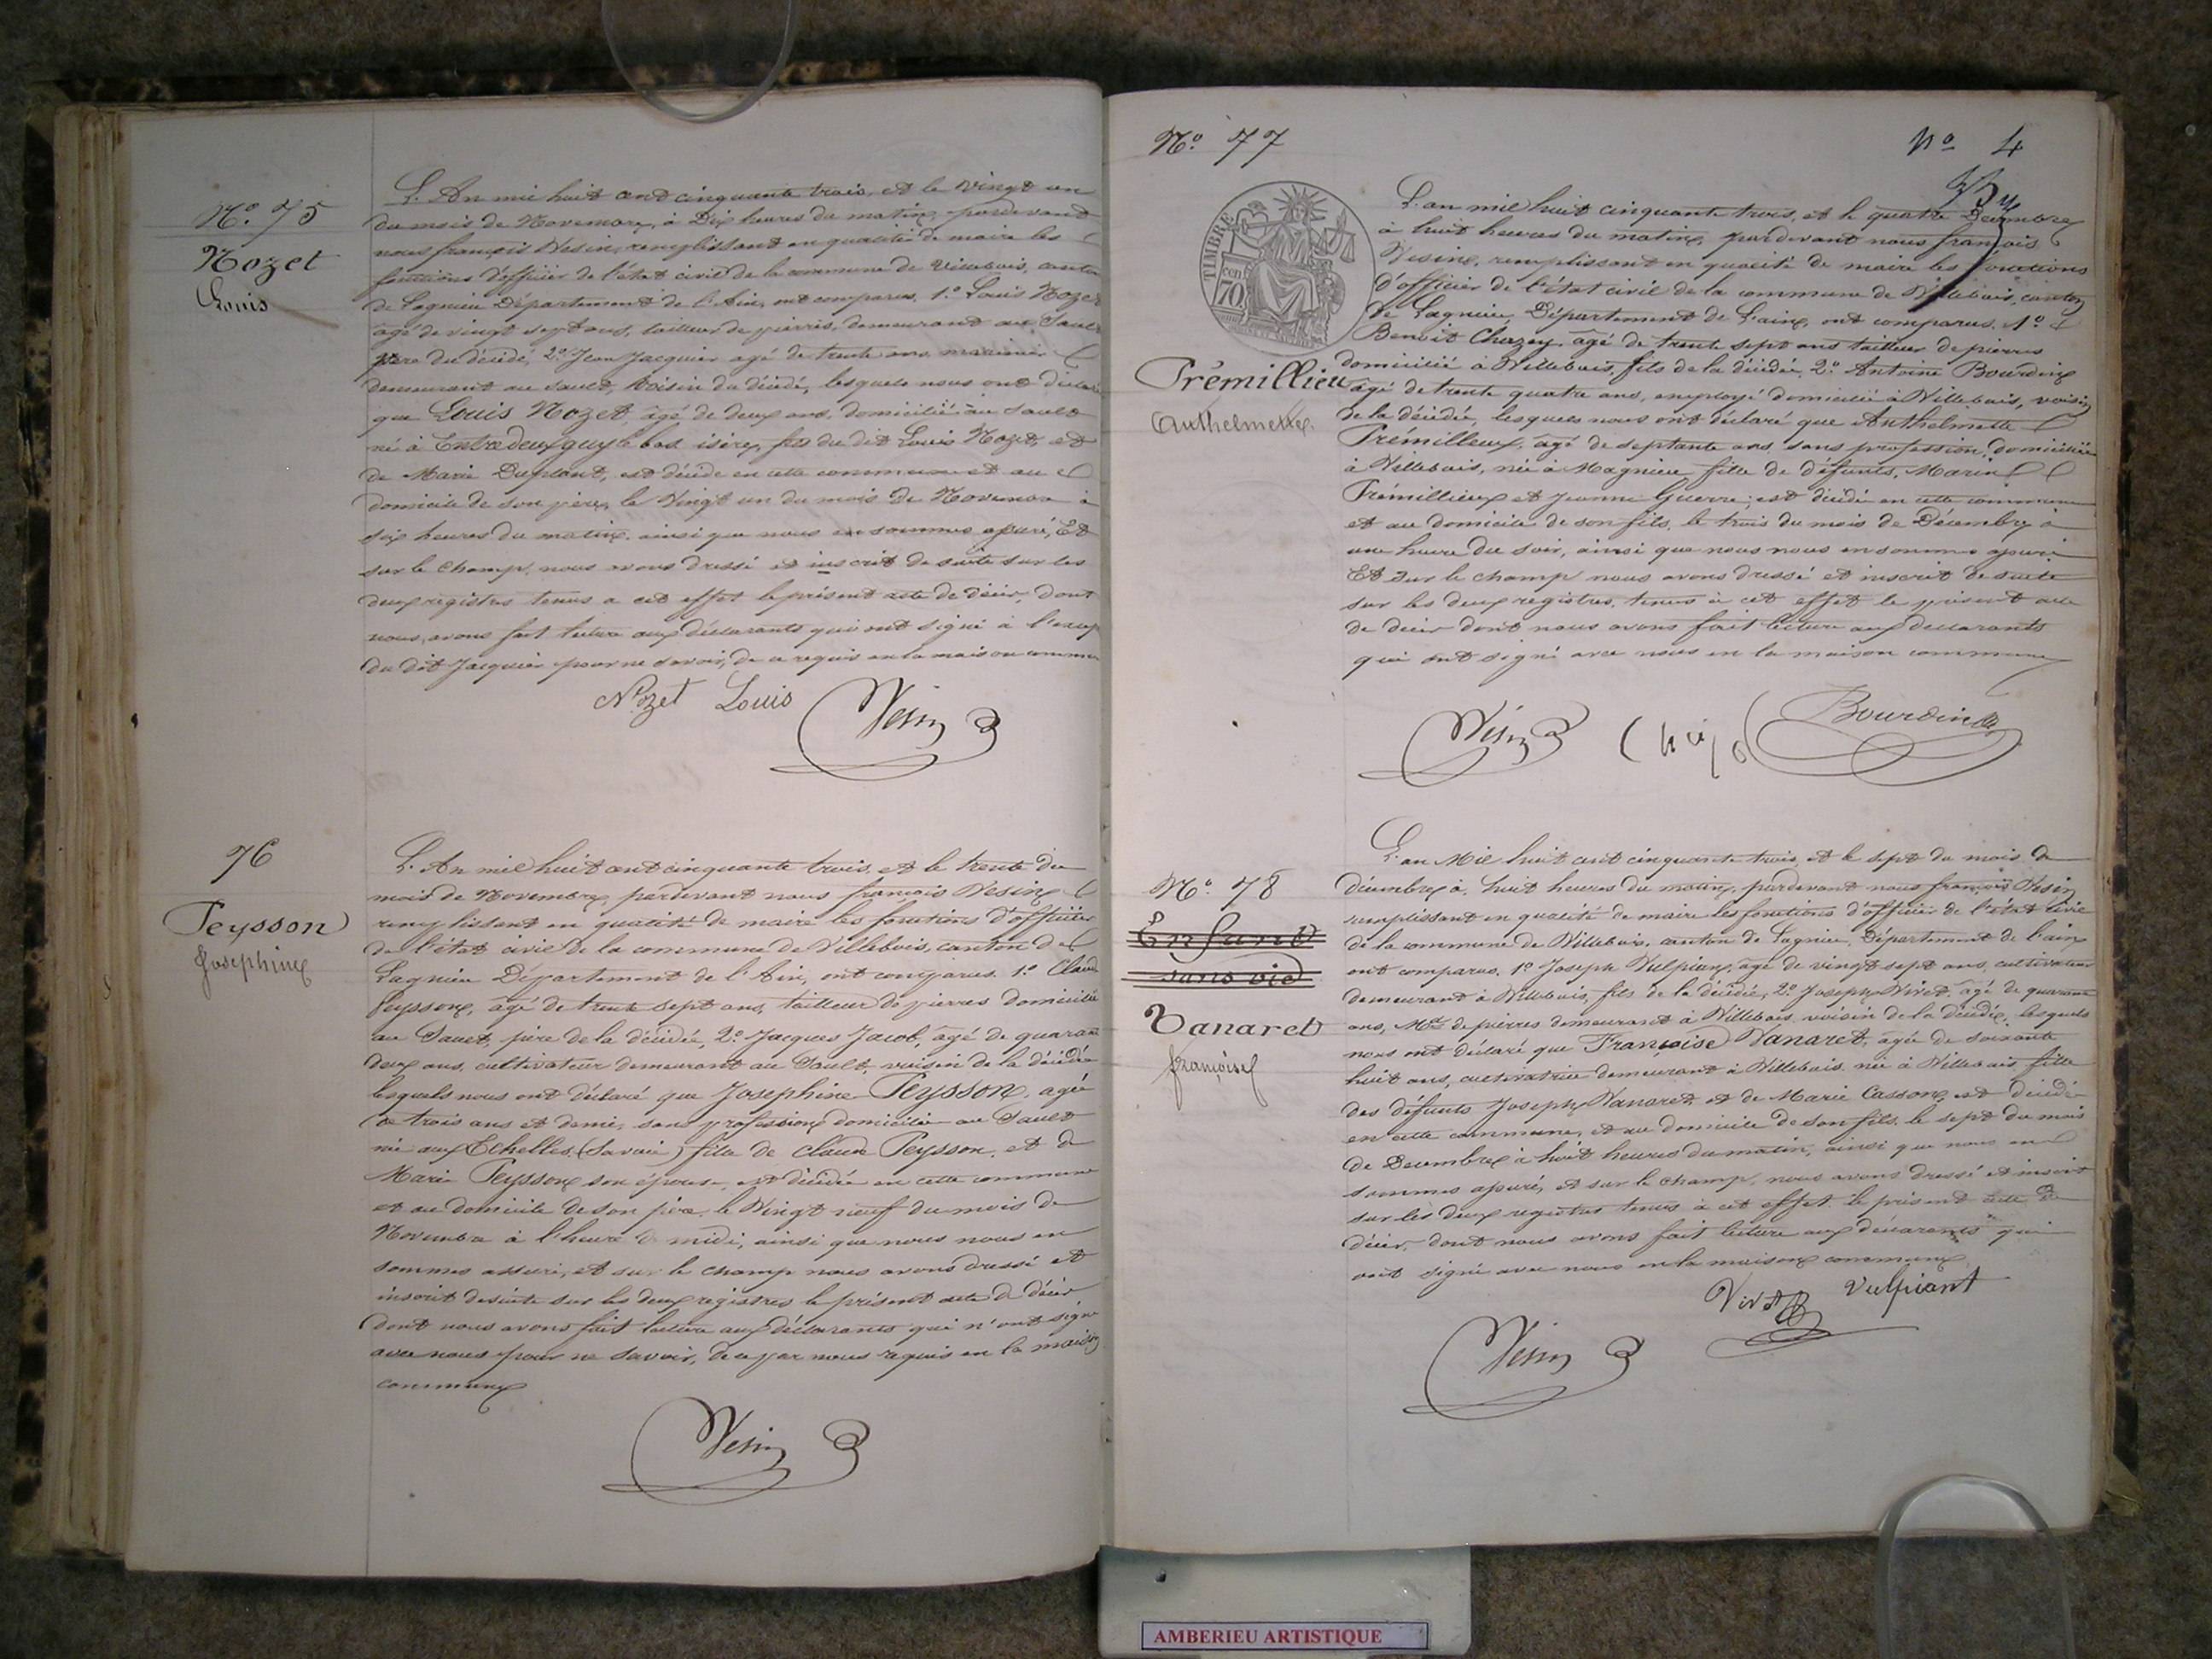 N.o 75
Nozet
Louis
L'An mil huit cent cinquante trois, et le vingt un
du mois de Novembre, à Dix heures du matin, pardevant
nous françois Vesin, remplissant en qualité de maire les
fonctions d'officier de l'état civil de la commune de Villebois, canton
de Lagnieu Département de l'Ain, ont comparus, 1.o Louis Nozet
agé de vingt sept ans, tailleur de pierres, demeurant au Sault
père du décédé, 2.o Jean Jacquier agé de trente ans marinier
demeurant au sault, voisin du décédé, lesquels nous ont déclaré
que Louis Nozet, agé de deux ans, domicilié au Sault
né à Entre deux guy le bas isère, fils du dit Louis Nozet, et
de Marie Duplant, est décédé en cette commune et au
domicile de son père, le vingt un du mois de Novembre à
six heures du matin, ainsi que nous en sommes assuré, Et
sur le champ, nous avons dressé et inscrit de suite sur les
deux registres tenus a cet effet le présent acte de décès, dont
nous avons fait lecture aux déclarants qui ont signé à l'excep
du dit Jacquier pour ne savoir, de ce requis en la maison commune
Nozet Louis Vesin
76
Peysson
Josephine
L'An mil huit cent cinquante trois, et le trente du
mois de Novembre, pardevant nous françois Vesin
remplissant en qualité de maire les fonctions d'officier
de l'état civil de la commune de Villebois, canton de
Lagnieu Département de l'Ain, ont comparus 1.o Claude
Peysson, âgé de trente sept ans, tailleur de pierres domicilié
au Sault, père de la décédée, 2.o Jacques Jacob, âgé de quarante
deux ans, cultivateur demeurant au Sault, voisin de la décédée
lesquels nous ont déclaré que Josephine Peysson, agée
de trois ans et demi, sans profession domiciliée au Sault
née aux Echelles (Savoie) fille de Claude Peysson, et de
Marie Peysson son épouse, est décédée en cette commune
et au domicile de son père, le vingt neuf du mois de
Novembre à l'heure de midi, ainsi que nous nous en
sommes assuré, et sur le champ nous avons dressé et
inscrit de suite sur les deux registres le présent acte de décès
dont nous avons fait lecture aux déclarants qui n'ont signé
avec nous pour ne savoir, de ce par nous requis en la maison
commune
Vesin
N.o 77
No 4
TIMBRE
70 cen
Trémillieu
Anthelmette
L'an mil huit cinquante trois, et le quatre Décembre
à huit heures du matin, pardevant nous françois
Vesin, remplissant en qualité de maire les fonctions
d'officier de l'état civil de la commune de Villebois, canton
de Lagnieu, Département de l'ain, ont comparus, 1.o
Benoit Chazey, âgé de trente sept ans tailleur de pierres
domicilié à Villebois, fils de la décédée, 2.o Antoine Bourdin
âgé de trente quatre ans, employé domicilié à Villebois, voisin
de la décédée, lesquels nous ont déclaré que Anthelmette
Trémilleux, âgé de septante ans, sans profession, domiciliée
à Villebois, née à Magnieu, fille de défunts, Marin
Trémillieux et Jeanne Guerre; est décédé en cette commune
et au domicile de son fils, le trois du mois de Décembre à
une heure du soir, ainsi que nous nous en sommes assuré
Et sur le champ nous avons dressé et inscrit de suite
sur les deux registres, tenus à cet effet le présent acte
de décès dont nous avons fait lecture aux déclarants
qui ont signé avec nous en la maison commune
Vesin Bourdin
N.o 78
Enfant
sans vie
Vanaret
françoise
L'an Mil huit cent cinquante trois, et le sept du mois de
décembre à huit heures du matin, pardevant nous françois Vesin
remplissant en qualité de maire les fonctions d'officier de l'état civil
de la commune de Villebois, canton de Lagnieu, Département de l'ain
ont comparus, 1.o Joseph Vulpian, âgé de vingt sept ans, cultivateur
demeurant à Villebois, fils de la décédée, 2.o Joseph Vivet, âgé de quarante
ans, Md de pierres demeurant à Villebois voisin de la décédée, lesquels
nous ont déclaré que Françoise Vanaret, agée de soixante
huit ans, cultivatrice demeurant à Villebois, née à Villebois fille
des défunts Joseph Vanaret, et de Marie Casson, est décédée
en cette commune, et au domicile de son fils, le sept du mois
de Décembre à huit heures du matin, ainsi que nous en
sommes assuré, et sur le champ, nous avons dressé et inscrit
sur les deux registres tenus à cet effet, le présent acte de
décès, dont nous avons fait lecture aux déclarants qui
ont signé avec nous en la maison commune
Vivet Vulpiant
Vesin
AMBERIEU ARTISTIQUE